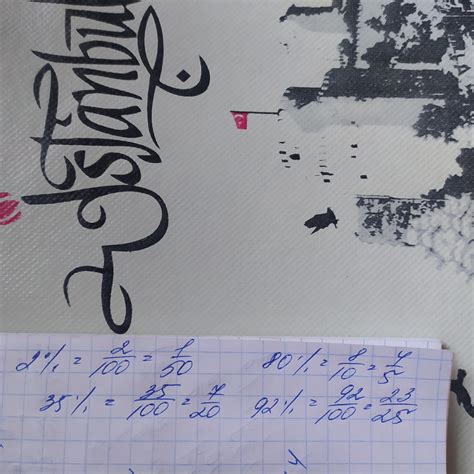 Istanbul
2% = 2/100 = 1/50
80% = 8/10 = 4/5
35% = 35/100 = 7/20
92% = 92/100 = 23/25